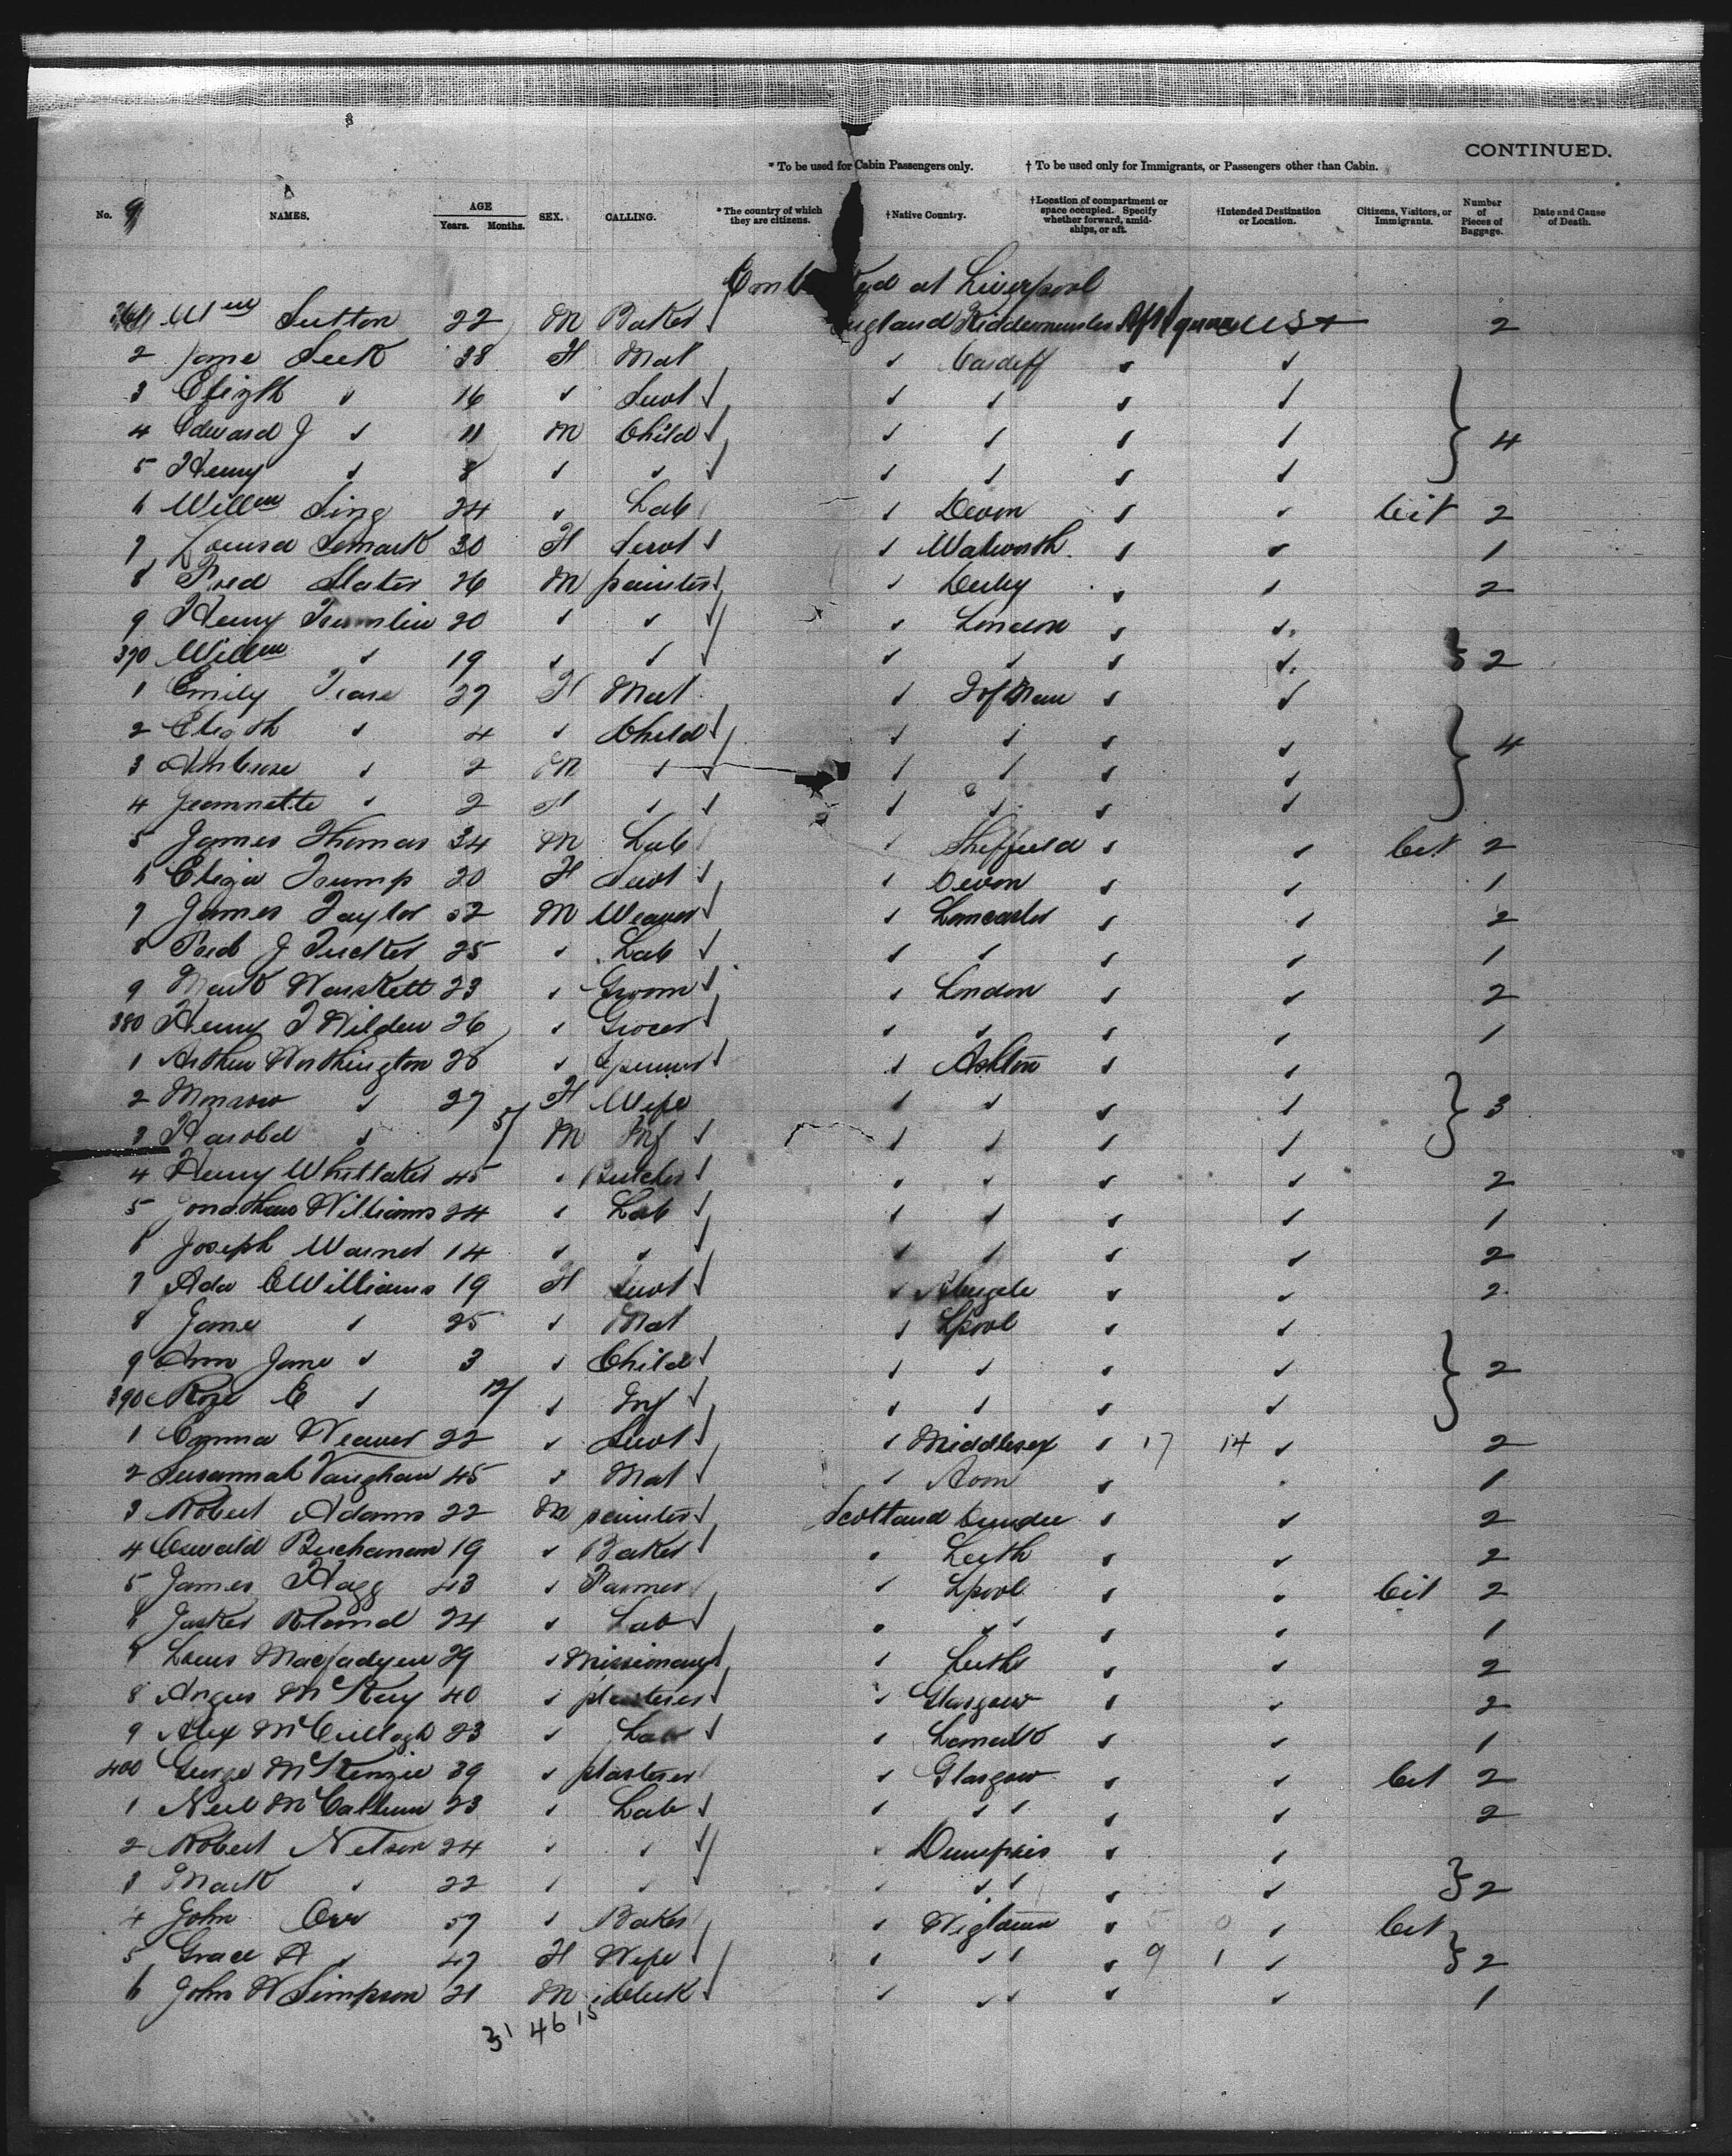 CONTINUED.
* To be used for Cabin Passengers only. † To be used only for Immigrants, or Passengers other than Cabin.
No. 9 NAMES. AGE Years. Months. SEX. CALLING. * The country of which they are citizens. † Native Country. † Location of compartment or space occupied. Specify whether forward, amidships, or aft. † Intended Destination or Location. Citizens, Visitors, or Immigrants. Number of Pieces of Baggage. Date and Cause of Death.
at Liverpool
361 Wm Sutton 22 M Baker England Kidderminster Aft USA 2
2 Jane 38 F Mat ✓ Cardiff ✓ ✓
3 Elizth ✓ 16 ✓ Servt ✓ ✓ ✓ ✓
4 Edward J ✓ 11 M Child ✓ ✓ ✓ ✓ 4
5 Henry ✓ 8 ✓ ✓ ✓ ✓ ✓ ✓
6 Willm 24 ✓ Lab ✓ Devon ✓ ✓ Cit 2
7 Louisa 30 F Servt ✓ Walworth ✓ ✓ 1
8 Fred Slater 26 M painter ✓ Derby ✓ ✓ 2
9 Henry 20 ✓ ✓ ✓ London ✓ ✓
370 Willm ✓ 19 ✓ ✓ ✓ ✓ ✓ ✓ 2
1 Emily 27 F Mat ✓ I of Man ✓ ✓
2 Elizth ✓ 4 ✓ Child ✓ ✓ ✓ ✓ 4
3 Ambrose ✓ 2 M ✓ ✓ ✓ ✓ ✓
4 Jeannette ✓ 2 F ✓ ✓ ✓ ✓ ✓
5 James Thomas 34 M Lab ✓ Sheffield ✓ ✓ Cit 2
6 Eliza Trump 20 F Servt ✓ Devon ✓ ✓ 1
7 James Taylor 52 M Weaver ✓ Lancaster ✓ ✓ 2
8 Fred J Tucker 25 ✓ Lab ✓ ✓ ✓ ✓ 1
9 Mark Warskett 23 ✓ Groom ✓ London ✓ ✓ 2
380 Henry J Wilden 26 ✓ Grocer ✓ ✓ ✓ ✓ 1
1 Arthur Worthington 28 ✓ Spinner ✓ Ashton ✓ ✓
2 ✓ 27 F Wife ✓ ✓ ✓ ✓ 3
3 Harold ✓ 5/ M Inf ✓ ✓ ✓ ✓
4 Henry Whittaker 45 ✓ Butcher ✓ ✓ ✓ ✓ 2
5 Jonathan Williams 24 ✓ Lab ✓ ✓ ✓ ✓ 1
6 Joseph Warner 14 ✓ ✓ ✓ ✓ ✓ ✓ 2
7 Ada C Williams 19 F Servt ✓ Abergele ✓ ✓ 2
8 Jane ✓ 25 ✓ Mat ✓ Lpool ✓ ✓
9 Ann Jane ✓ 3 ✓ Child ✓ ✓ ✓ ✓ 2
390 Rose E ✓ ✓ Inf ✓ ✓ ✓ ✓
1 Emma Weaver 22 ✓ Servt ✓ Middlesex ✓ 17 14 ✓ 2
2 Susannah Vaughan 45 ✓ Mat ✓ ✓ 1
3 Robert Adams 22 M painter Scotland Dundee ✓ ✓ 2
4 Oswald Buchanan 19 ✓ Baker ✓ Leith ✓ ✓ 2
5 James Hagg 43 ✓ Farmer ✓ Lpool ✓ ✓ Cit 2
6 24 ✓ Lab ✓ ✓ ✓ ✓ ✓ 1
8 Louis Macfadyen 29 ✓ Missionary ✓ Leith ✓ ✓ 2
8 Angus McKay 40 ✓ plasterer ✓ Glasgow ✓ ✓ 2
9 Alex McCullogh 23 ✓ Lab ✓ Lanark ✓ ✓ 1
400 George McKenzie 39 ✓ plasterer ✓ Glasgow ✓ ✓ Cit 2
1 Neil McCallum 23 ✓ Lab ✓ ✓ ✓ ✓ ✓ 2
2 Robert Nelson 24 ✓ ✓ ✓ Dumfries ✓ ✓
3 Mark ✓ 22 ✓ ✓ ✓ ✓ ✓ ✓ ✓ 2
4 John Orr 57 ✓ Baker ✓ Wigtown ✓ 5 0 ✓ Cit
5 Grace A ✓ 47 F Wife ✓ ✓ ✓ ✓ 9 1 ✓ 2
6 John W Simpson 21 M Clerk ✓ ✓ ✓ ✓ ✓ 1
31 46 15